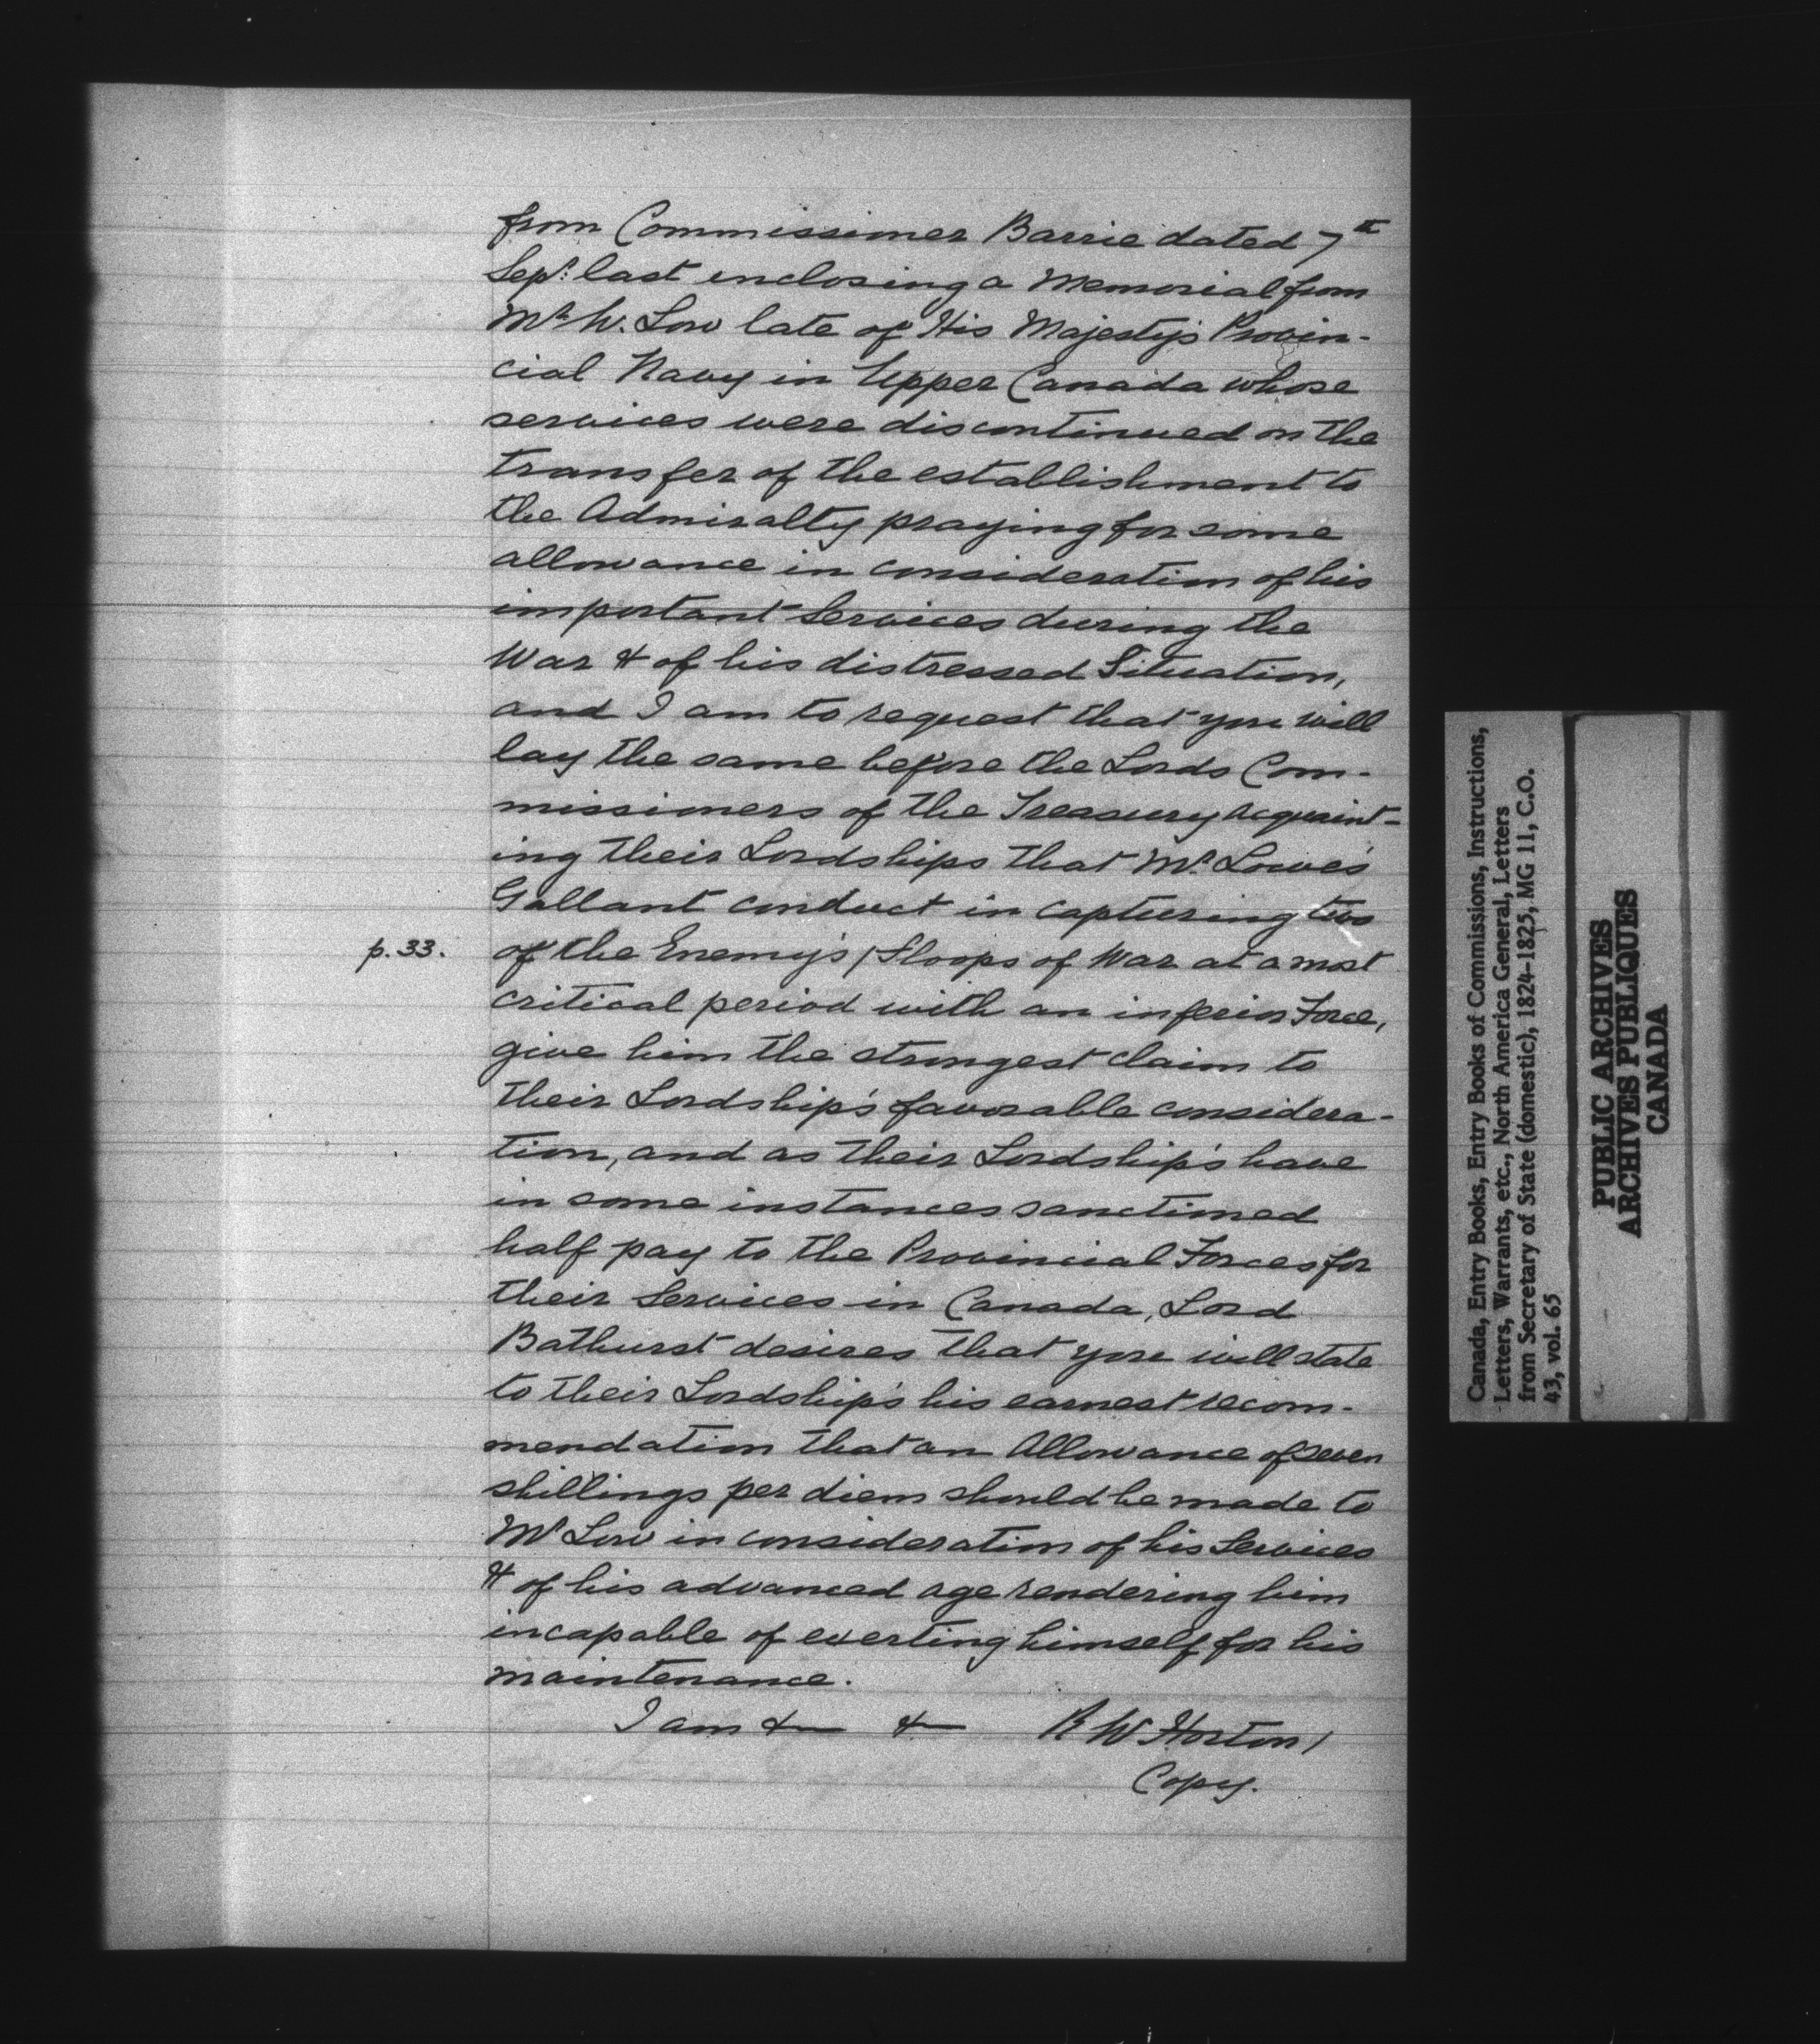 from Commissioner Barrie dated 7th
Sept. last enclosing a Memorial from
Mr. W. Low late of His Majesty's Provin-
cial Navy in Upper Canada whose
services were discontinued on the
transfer of the establishment to
the Admiralty praying for some
allowance in consideration of his
important Services during the
War & of his distressed Situation,
and I am to request that you will
lay the same before the Lords Com-
missioners of the Treasury acquaint-
ing their Lordships that Mr. Lowe's
Gallant conduct in capturing two
p. 33. of the Enemy's / Sloops of War at a most
critical period with an inferior Force,
give him the strongest claim to
their Lordship's favorable considera-
tion, and as their Lordship's have
in some instances sanctioned
half pay to the Provincial Forces for
their Services in Canada, Lord
Bathurst desires that you will state
to their Lordship's his earnest recom-
mendation that an Allowance of seven
shillings per diem should be made to
Mr Low in consideration of his Services
& of his advanced age rendering him
incapable of exerting himself for his
maintenance.
I am & &  R W Horton /
Copy.
Canada, Entry Books, Entry Books of Commissions, Instructions,
Letters, Warrants, etc., North America General, Letters
from Secretary of State (domestic), 1824-1825, MG 11, C.O.
43, vol. 65
PUBLIC ARCHIVES
ARCHIVES PUBLIQUES
CANADA